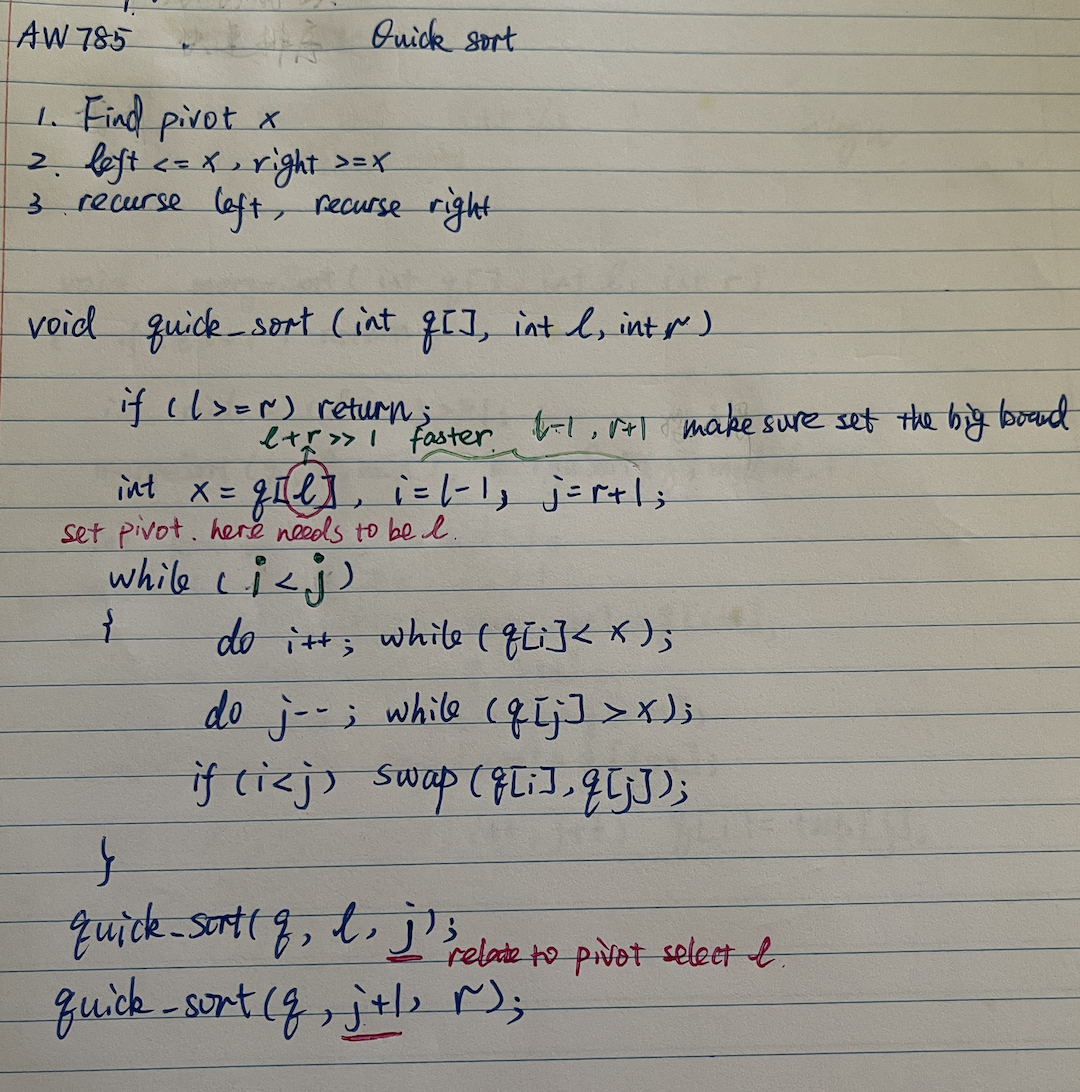 AW 785 Quick sort
1. Find pivot x
2. left <= x, right >=x
3. recurse left, recurse right
void quick_sort (int q[], int l, int r)
if (l >= r) return;
l+r >> 1 faster l-1, r+1 make sure set the big board
int x = q[l], i=l-1, j=r+1;
set pivot. here needs to be l.
while (i < j)
{ do i++; while (q[i]< x);
do j--; while (q[j] >x);
if (i<j) swap (q[i], q[j]);
}
quick_sort(q, l, j);
relate to pivot select l.
quick_sort(q, j+1, r);